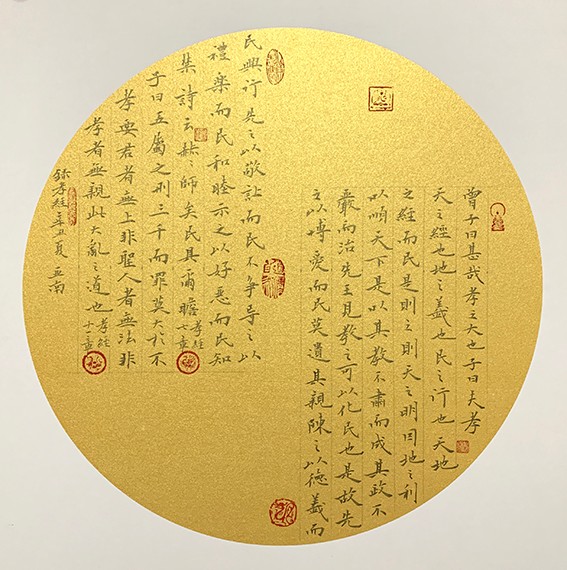 曾子曰甚哉孝之大也子曰夫孝
天之經也地之義也民之行也天地
之經而民是則之則天之明因地之利
以順天下是以其教不肅而成其政不
嚴而治先王見教之可以化民也是故先
之以博愛而民莫遺其親陳之以德義而
民興行先之以敬讓而民不爭導之以
禮樂而民和睦示之以好惡而民知
禁詩云赫〻師尹民具爾瞻 孝經七章
子曰五屬之刑三千而罪莫大於不
孝要君者無上非聖人者無法非
孝者無親此大亂之道也 孝經十一章
錄孝經辛丑夏 亞南